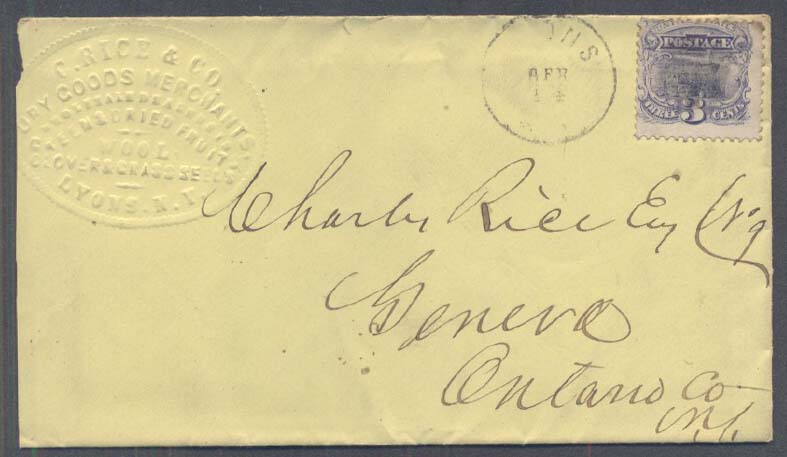 C. RICE & CO.
DRY GOODS MERCHANTS,
WHOLESALE DEALERS IN
GREEN & DRIED FRUIT
WOOL
CLOVER & GRASS SEEDS
LYONS. N. Y.
APR
14
POSTAGE
THREE 3 CENTS
Charles Rice Esq
Geneva
Ontario Co
N.Y.